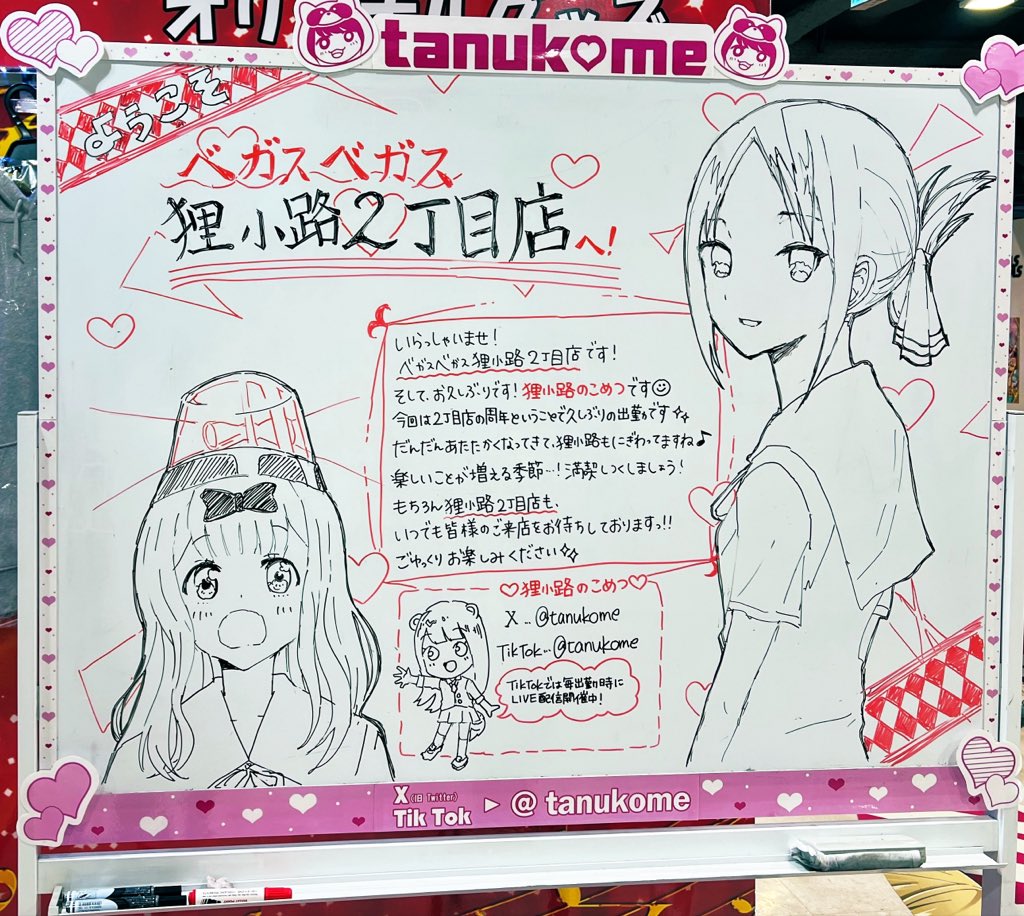 オリジナルグッズ
tanukome
ようこそ
ベガスベガス
狸小路2丁目店へ!
いらっしゃいませ!
ベガスベガス狸小路2丁目店です!
そして、お久しぶりです!狸小路のこめつです
今回は2丁目店の周年ということで久しぶりの出勤です
だんだんあたたかくなってきて、狸小路もにぎわってますね♪
楽しいことが増える季節…!満喫しつくしましょう!
もちろん狸小路2丁目店も、
いつでも皆様のご来店をお待ちしておりますっ!!
ごゆっくりお楽しみください
♡狸小路のこめつ♡
X…@tanukome
TikTok…@tanukome
TikTokでは毎出勤時に
LIVE配信開催中!
X(旧 Twitter)
Tik Tok ▶ @tanukome